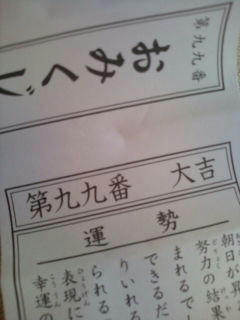 第九九番
おみくじ
第九九番 大吉
運勢
朝日が昇
努力の結果
まれるでし
できるだ
りいれる
られる
表現に
幸運の